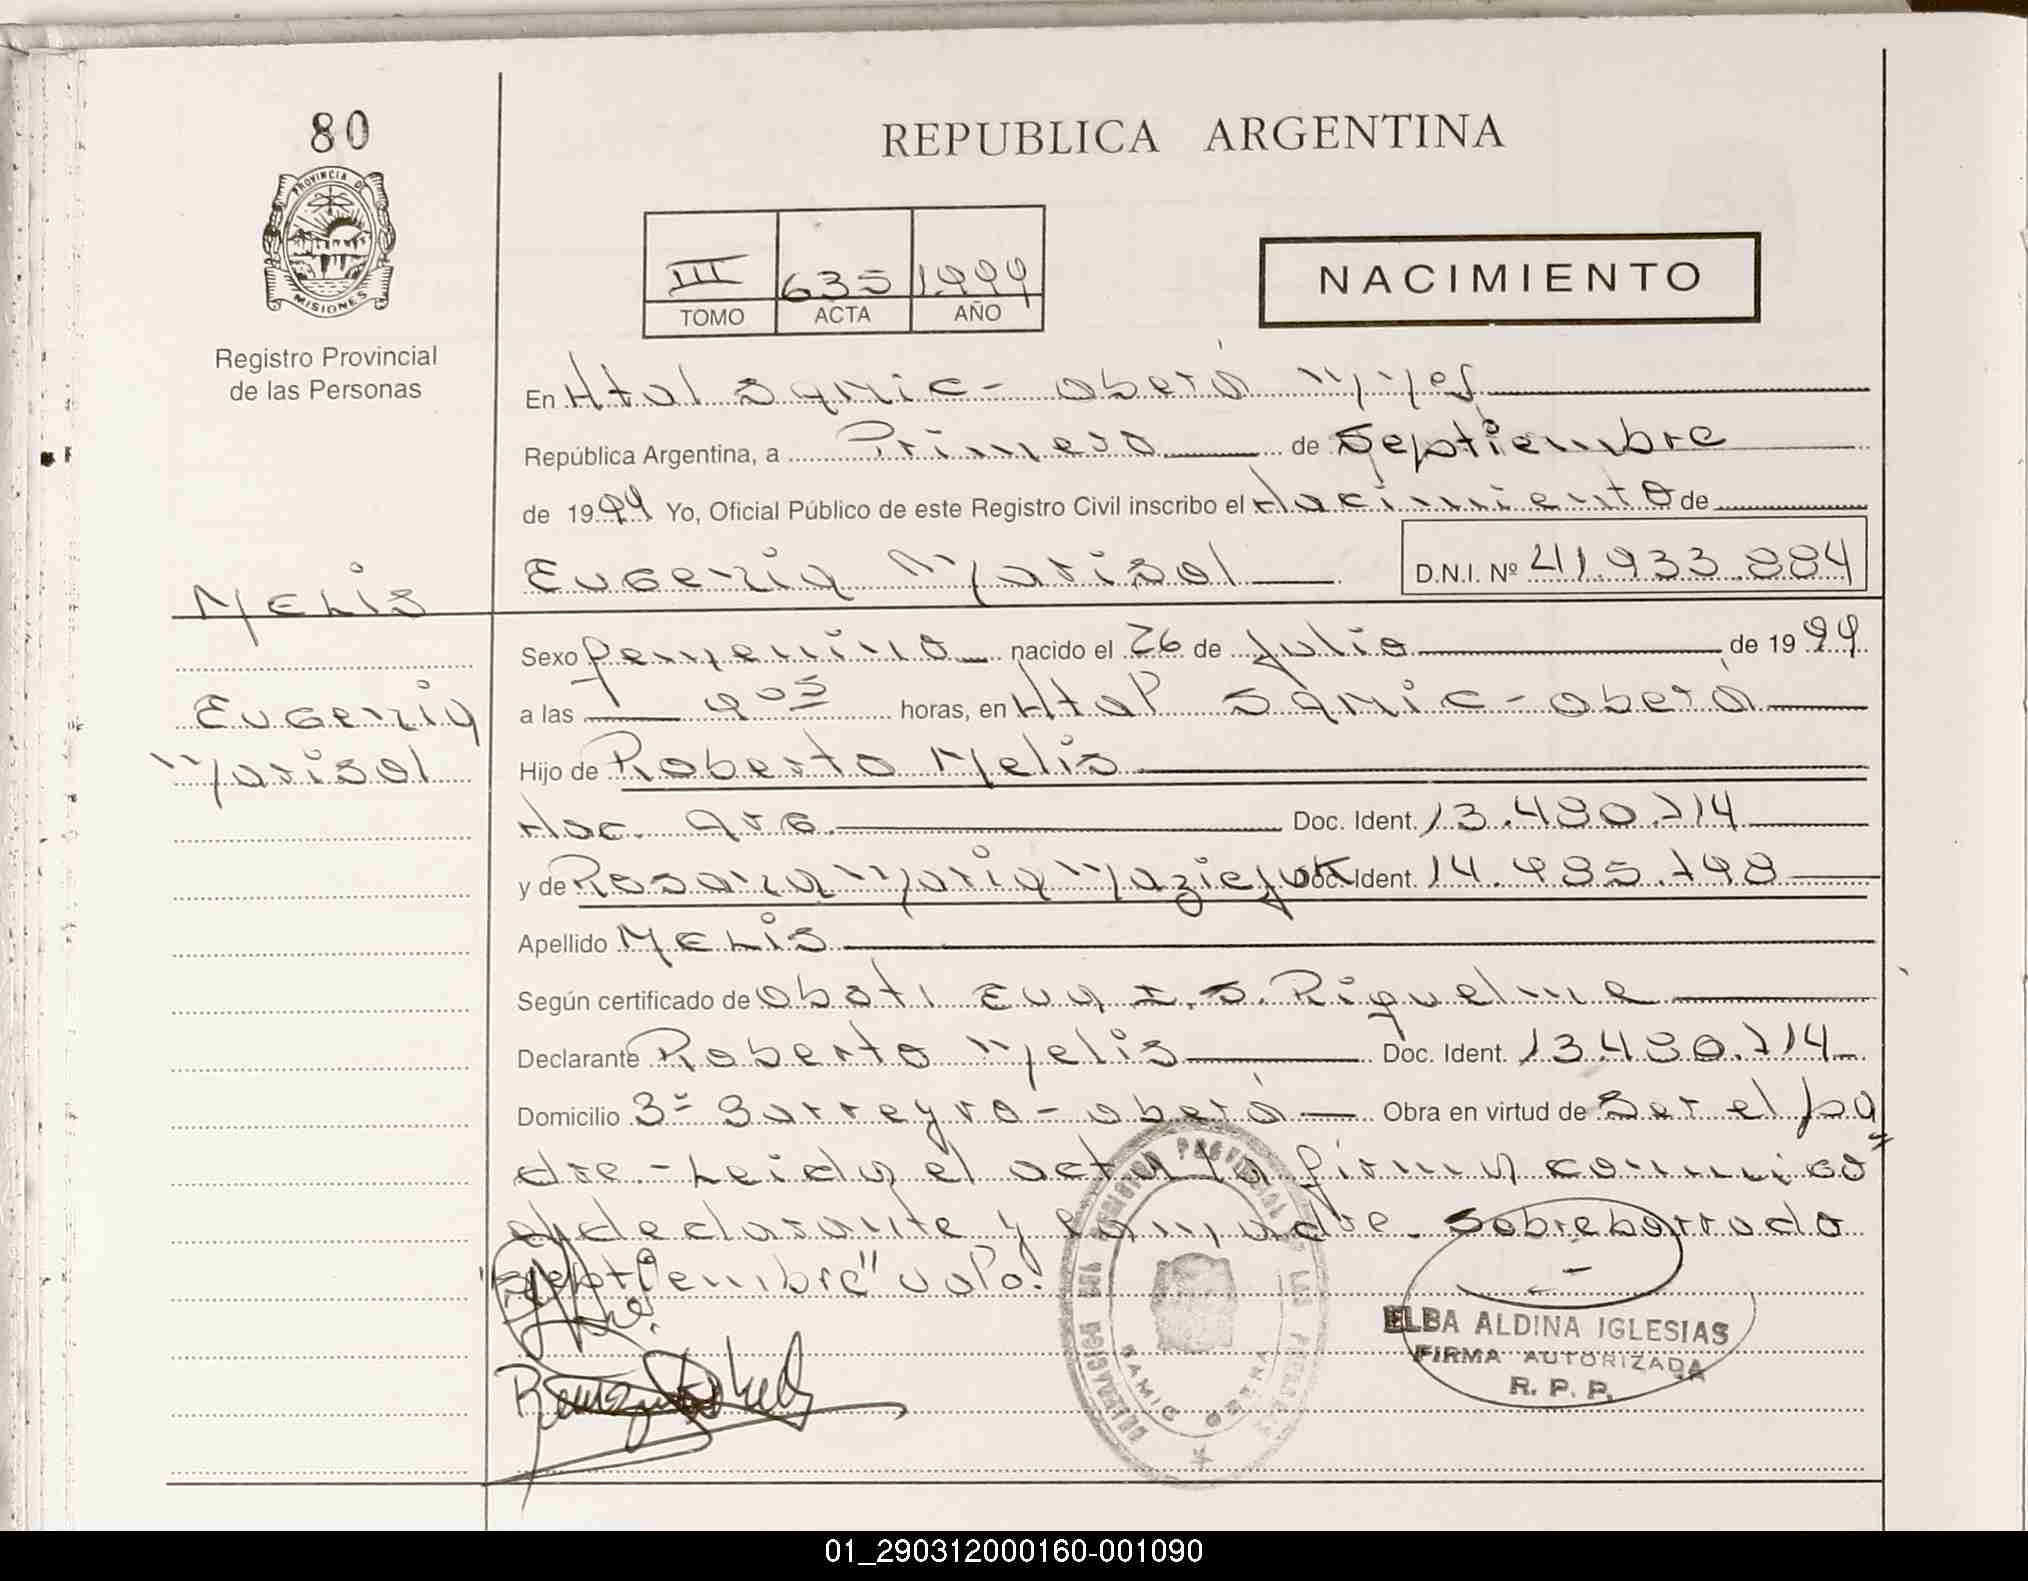 80
REPUBLICA ARGENTINA
PROVINCIA DE
MISIONES
Registro Provincial
de las Personas
III 635 1994
TOMO ACTA AÑO
NACIMIENTO
En Htal Samic - Oberá Mnes
República Argentina, a Primero de Septiembre
de 1994 Yo, Oficial Público de este Registro Civil inscribo el Nacimiento de
Eugenia Marisol D.N.I. Nº 41.933.884
MELIS
Sexo femenino nacido el 26 de Julio de 1994
Eugenia
a las horas, en Htal Samic - Oberá
Marisol
Hijo de Roberto Melis
Nac. Arg. Doc. Ident. 13.480.714
y de Rosana Maria Doc. Ident. 14.485.798
Apellido MELIS
Según certificado de Obst. Eva I. S. Riquelme
Declarante Roberto Melis Doc. Ident. 13.480.714
Domicilio 3º Barreyro - Oberá Obra en virtud de Ser el pa
dre. - Leida el acta la firman conmigo
el declarante y la madre. Sobreborrado
"Septiembre" vale.
DELEGACION DEL REGISTRO PROVINCIAL DE LAS PERSONAS
SAMIC OBERA
ELBA ALDINA IGLESIAS
FIRMA AUTORIZADA
R. P. P.
01_290312000160-001090